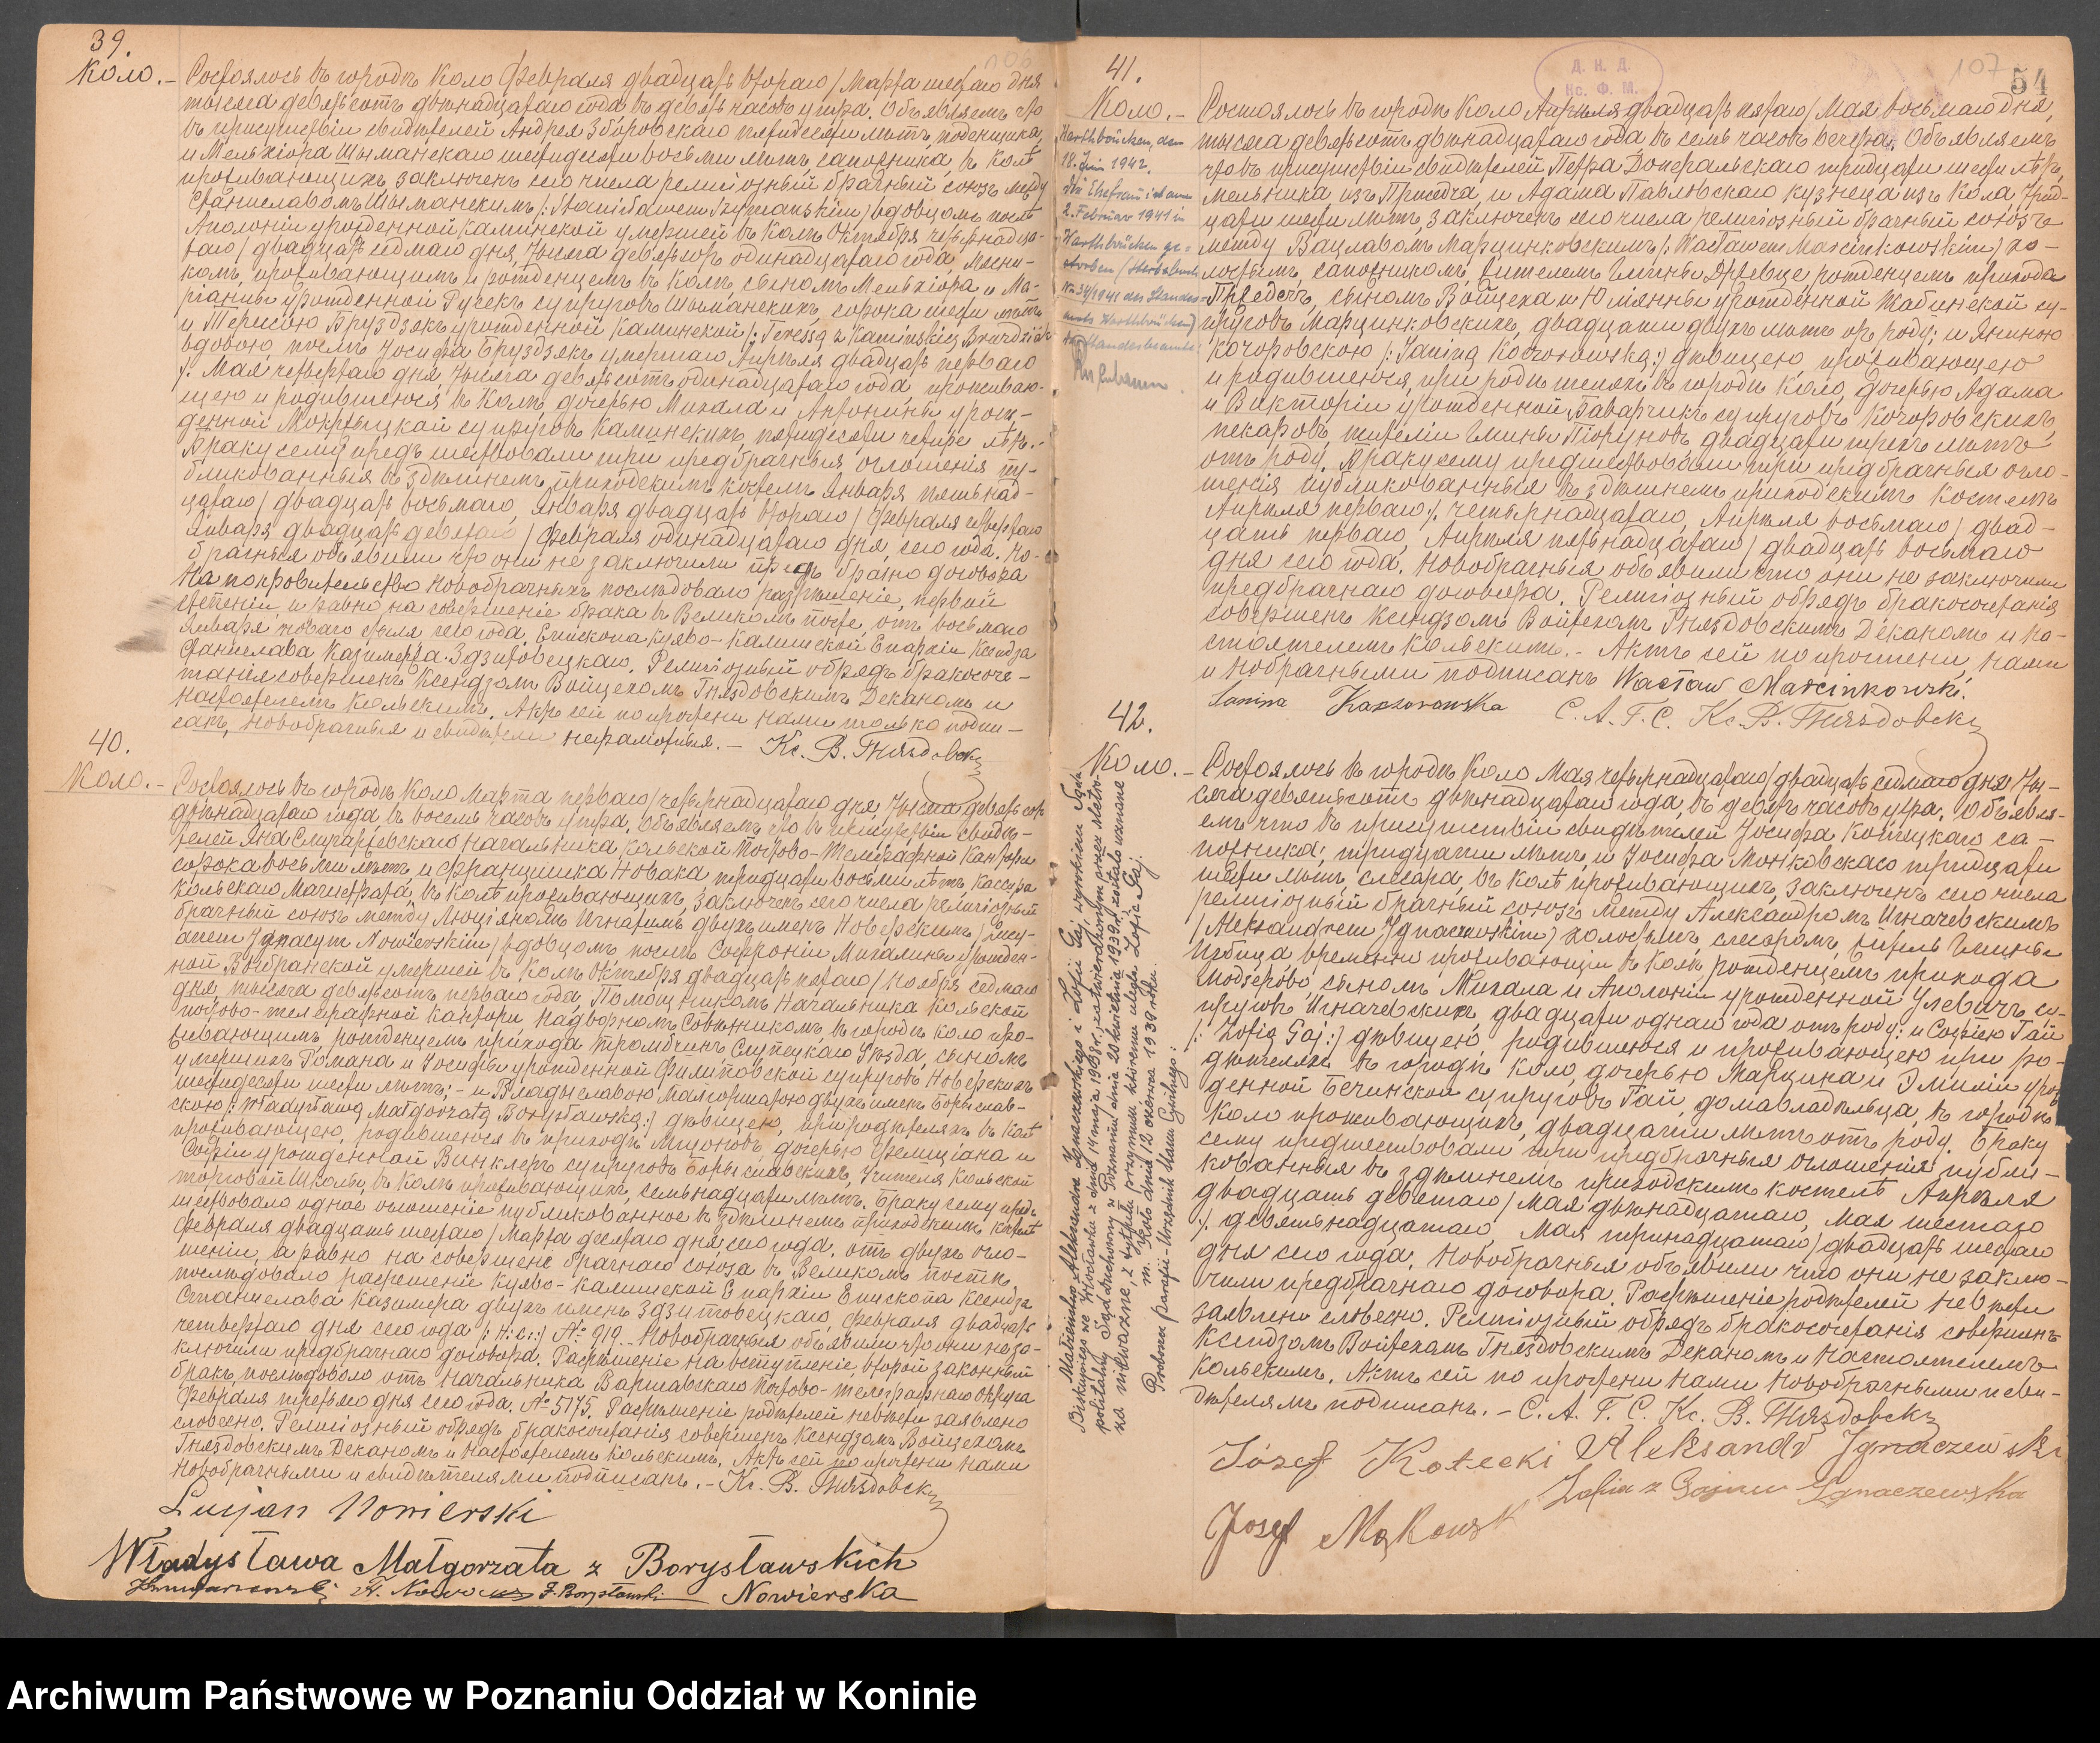 39.
Коло. — Состоялось въ городѣ Коло Февраля двадцать второго / Марта шестаго дня
тысяча девятьсотъ двѣнадцатаго года въ девять часовъ утра. Объявляемъ что
въ присутствіи свидѣтелей Андрея Зборовскаго пятидесяти лѣтъ, поденщика,
и Мельхіора Шыманскаго шестидесяти восьми лѣтъ, сапожника, въ Колѣ
проживающихъ, заключенъ сего числа религіозный брачный союзъ между
Станиславомъ Шыманскимъ /: Stanisławem Szymańskim / вдовцомъ послѣ
Аполоніи урожденной Каминской умершей въ Колѣ Октября четырнадца-
таго / двадцать седмаго дня, тысяча девятьсотъ одинадцатаго года,
комъ, проживающимъ и рожденцемъ въ Колѣ, сыномъ Мельхіора и Ма-
ріанны урожденной Ручекъ супруговъ Шыманскихъ, сорока шести лѣтъ
и Терезою Бруздзякъ урожденной Каминской /: Teressą z Kamińskich Bruździak
вдовою послѣ Іосифа Бруздзякъ умершаго Апрѣля двадцать перваго
/: Мая четвертаго дня, тысяча девятьсотъ одинадцатаго года, проживаю-
щею и родившеюся въ Колѣ, дочерью Михала и Антонины урож-
денной Мокрыцкой супруговъ Каминскихъ, пятидесяти четыре лѣтъ.
Браку сему предшествовали три предбрачныя оглошенія пу-
бликованныя въ здѣшнемъ приходскимъ костелѣ Января пятьнад-
цатаго / двадцать восьмаго, Января двадцать второго / Февраля четвертаго
Января двадцать девятаго / Февраля одинадцатаго дня сего года. Но-
брачныя объявили что они не заключили предъ брачно договора
На покровительство новобрачныхъ послѣдовало разрѣшеніе, первой
степеніи, и равно на совершеніе брака въ Великомъ постѣ, отъ восьмаго
Января новаго стыля сего года, Епископа Куяво-Калишской Епархіи Ксендза
Станислава Казимера Здзитовецкаго. Религіозный обрядъ бракосоче-
танія совершенъ Ксендзомъ Войцехомъ Гнѣздовскимъ Деканомъ и
Настоятелемъ Кольскимъ. Актъ сей по прочтени нами только подпи-
санъ, новобрачныя и свидѣтели неграмотныя. — Кс. В. Гнѣздовскі
40.
Коло. — Состоялось въ городѣ Коло Марта перваго / четырнадцатаго дня, тысяча девятьсотъ
двѣнадцатаго года въ восемь часовъ утра. Объявляемъ что въ присутствіи свидѣ-
телей Яна начальника Кольской Почтово-Телеграфной Канторы
сорока восьми лѣтъ, и Францишка Новака тридцати восьми лѣтъ, Кассира
Кольскаго Магистрата, въ Колѣ проживающихъ, заключенъ сего числа религіозный
брачный союзъ между Люціяномъ Игнатымъ двухъ именъ Новерскимъ / Lucy-
anem Ignacym Nowierskim / вдовцомъ, послѣ Софроніи Михалины урожден-
ной Выбранской умершей въ Колѣ Октября двадцать пятаго / Ноября седмаго
дня, тысяча девятьсотъ перваго года, Помощникомъ Начальника Кольской
почтово-телеграфной Канторы Надворномъ Совѣтникомъ въ городѣ Коло про-
живающимъ, рожденцемъ прихода Тромбчинъ Слупецкаго Уѣзда, сыномъ
умершихъ Романа и Іосифы урожденной Филиповской супруговъ Новерскихъ
шестидесяти шести лѣтъ; — и Владыславою Малгоржатою двухъ именъ Борыслав-
скою /: Władysławą Małgorzatą Borysławską :/ дѣвицею, при родителяхъ въ Колѣ
проживающею, родившеюся въ приходѣ, дочерью Фелиціана и
Софіи урожденной Винклеръ супруговъ Борыславскихъ, Учителя Кольской
торговой Школы, въ Колѣ проживающихъ, семьнадцати лѣтъ. Браку сему пред-
шествовало одное оглошеніе публикованное въ здѣшнемъ приходскимъ костелѣ
Февраля двадцать шестаго / Марта десятаго дня, сего года. отъ двухъ огло-
шеніи, а равно на совершене брачнаго союза въ Великомъ постѣ,
послѣдовало разрешеніе Куяво-Калишской Епархіи Епископа Ксендза
Станислава Казимера двухъ именъ Здзитовецкаго, Февраля двадцать
четвертаго дня сего года /: н: с: :/ № 919. Новобрачныя объявили что они не за-
ключили предбрачнаго договора. Разрѣшеніе на вступленіе второй законный
бракъ, послѣдовало отъ Начальника Варшавскаго Почтово-телеграфнаго Округа
Февраля третьяго дня сего года. № 5175. Разрѣшеніе родителей невѣсты заявлено
словесно. Религіозный обрядъ бракосочетанія совершенъ Ксендзомъ Войцехомъ
Гнѣздовскимъ Деканомъ и Настоятелемъ Кольскимъ. Актъ сей по прочтени нами
новобрачными и свидѣтелями подписанъ. — Кс. В. Гнѣздовскі
Lucjan Nowierski
Władysława Małgorzata z Borysławskich
F. Nowak F. Borysławski Nowierska
107 54
Д. Н. Д.
Кс. Ф. М.
41.
Коло. — Состоялось въ городѣ Коло Апрѣля двадцать пятаго / Мая восьмаго дня,
тысяча девятьсотъ двѣнадцатаго года въ семь часовъ вечера. Объявляемъ
что въ присутствіи свидѣтелей Петра Доперальскаго тридцати шести лѣтъ,
мельника, изъ, и Адама Павловскаго кузнеца изъ Кола, трид-
цати шести лѣтъ, заключенъ сего числа религіозный брачный союзъ
между Вацлавомъ Марцинковскимъ /: Wacławem Marcinkowskim / хо-
лостымъ, сапожникомъ, жителемъ Гмины, рожденцемъ прихода
Пржедечъ, сыномъ Войцеха и Юліянны урожденной Жабинской су-
пруговъ Марцинковскихъ, двадцати двухъ лѣтъ отъ роду; и Яниною
Качоровскою /: Janiną Kaczorowską :/ дѣвицею, проживающею
и родившеюся, при родителяхъ въ городѣ Коло, дочерью Адама
и Викторіи урожденной Баварчикъ супруговъ Качоровскихъ,
пекаровъ, жители Гмины Піоруновъ, двадцати трехъ лѣтъ
отъ роду. Браку сему предшествовали три предбрачныя огло-
шенія публикованныя въ здѣшнемъ приходскимъ костелѣ
Апрѣля перваго /: четырнадцатаго, Апрѣля восьмаго / двад-
цать перваго, Апрѣля пятьнадцатаго / двадцать восьмаго
дня сего года. Новобрачныя объявили что они не заключили
предбрачнаго договора. Религіозный обрядъ бракосочетанія
совершенъ Ксендзомъ Войцехомъ Гнѣздовскимъ Деканомъ и На-
стоятелемъ Кольскимъ. — Актъ сей по прочтени, нами
и новобрачными подписанъ Wacław Marcinkowski.
Janina Kaczorowska С. А. Г. С. Кс. В. Гнѣздовскі
Warthbrücken, den
18. Juni 1942.
Die Ehefrau ist am
2. Februar 1941 in
Warthbrücken ge-
storben / Sterbebuch
Nr. 34/1941 des Standes-
amts Warthbrücken)
Der Standesbeamte
42.
Коло. — Состоялось въ городѣ Коло Мая четырнадцатаго / двадцать седмаго дня, ты-
сяча девятьсотъ двѣнадцатаго года, въ девять часовъ утра. Объявля-
емъ что въ присутствіи свидѣтелей Іосифа Котецкаго са-
пожника, тридцати лѣтъ, и Іосифа Монковскаго тридцати
шести лѣтъ, слесара, въ Колѣ проживающихъ, заключенъ сего числа
религіозный брачный союзъ между Александромъ Игначевскимъ
/ Aleksandrem Ignaczewskim / холостымъ, слесаромъ, житель Гмины
Избица временно проживающій въ Колѣ, рожденцемъ прихода
Модзерово сыномъ Михала и Аполоніи урожденной Улевачъ су-
пруговъ Игначевскихъ двадцати одного года отъ роду: и Софіею Гай
/: Zofią Gaj :/ дѣвицею, родившеюся и проживающею при ро-
дителяхъ въ городѣ Коло, дочерью Марцина и Эмиліи урож-
денной Бечинской супруговъ Гай, домавладѣльца, въ городѣ
Коло проживающихъ, двадцати лѣтъ отъ роду. Браку
сему предшествовали три предбрачныя оглошенія публи-
кованныя въ здѣшнемъ приходскимъ костелѣ Апрѣля
двадцать девятаго / Мая двѣнадцатаго, Мая шестаго
/: девятьнадцатаго, Мая тринадцатаго / двадцать шестаго
дня сего года. Новобрачныя объявили что они не заклю-
чили предбрачнаго договора. Разрѣшеніе родителей невѣсты
заявлено словесно. Религіозный обрядъ бракосочетанія совершенъ
Ксендзомъ Войцехомъ Гнѣздовскимъ Деканомъ и Настоятелемъ
Кольскимъ. Актъ сей по прочтени нами новобрачными и сви-
дѣтелямъ подписанъ. — С. А. Г. С. Кс. В. Гнѣздовскі
Józef Kotecki Aleksandr Ignaczewski
Zofia z Gajów Ignaczewska
Józef Mąkowski
Małżeństwo Aleksandra Ignaczewskiego i Zofii Gaj wyrokiem Sądu
Biskupiego we Włocławku z dnia 14 maja 1938 r., zatwierdzonym przez Metro-
politalny Sąd duchowny w Poznaniu dnia 20 kwietnia 1939 r. zostało uznane
za nieważne, z tytułu przymusu, któremu uległa Zofia Gaj.
m. Koło dnia 12 czerwca 1939 roku.
Proboszcz parafii – Urzędnik Stanu Cywilnego:
Archiwum Państwowe w Poznaniu Oddział w Koninie